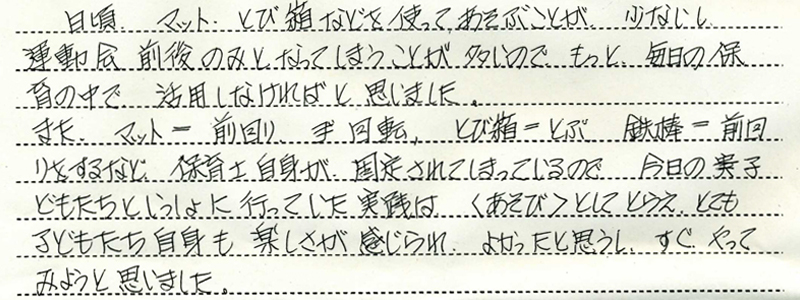 日頃、マット、とび箱などを使って、あそぶことが、少ないし、
運動会前後のみとなってしまうことが多いので、もっと、毎日の保
育の中で　活用しなければと思いました。
また、マット＝前回り、手回転、とび箱＝とぶ　鉄棒＝前回
りをするなど、保育士自身が、固定されてしまっているので　今日の実子
どもたちといっしょに行っていた実践は〈あそび〉としてとらえ、とても
子どもたち自身も楽しさが感じられ、よかったと思うし、すぐ、やって
みようと思いました。